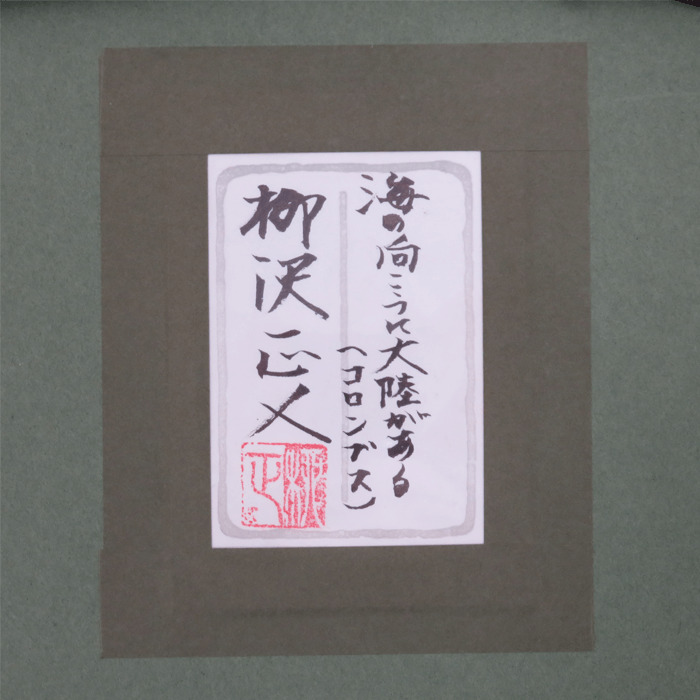 海の向こうに大陸がある
(コロンブス)
柳沢正人
柳正